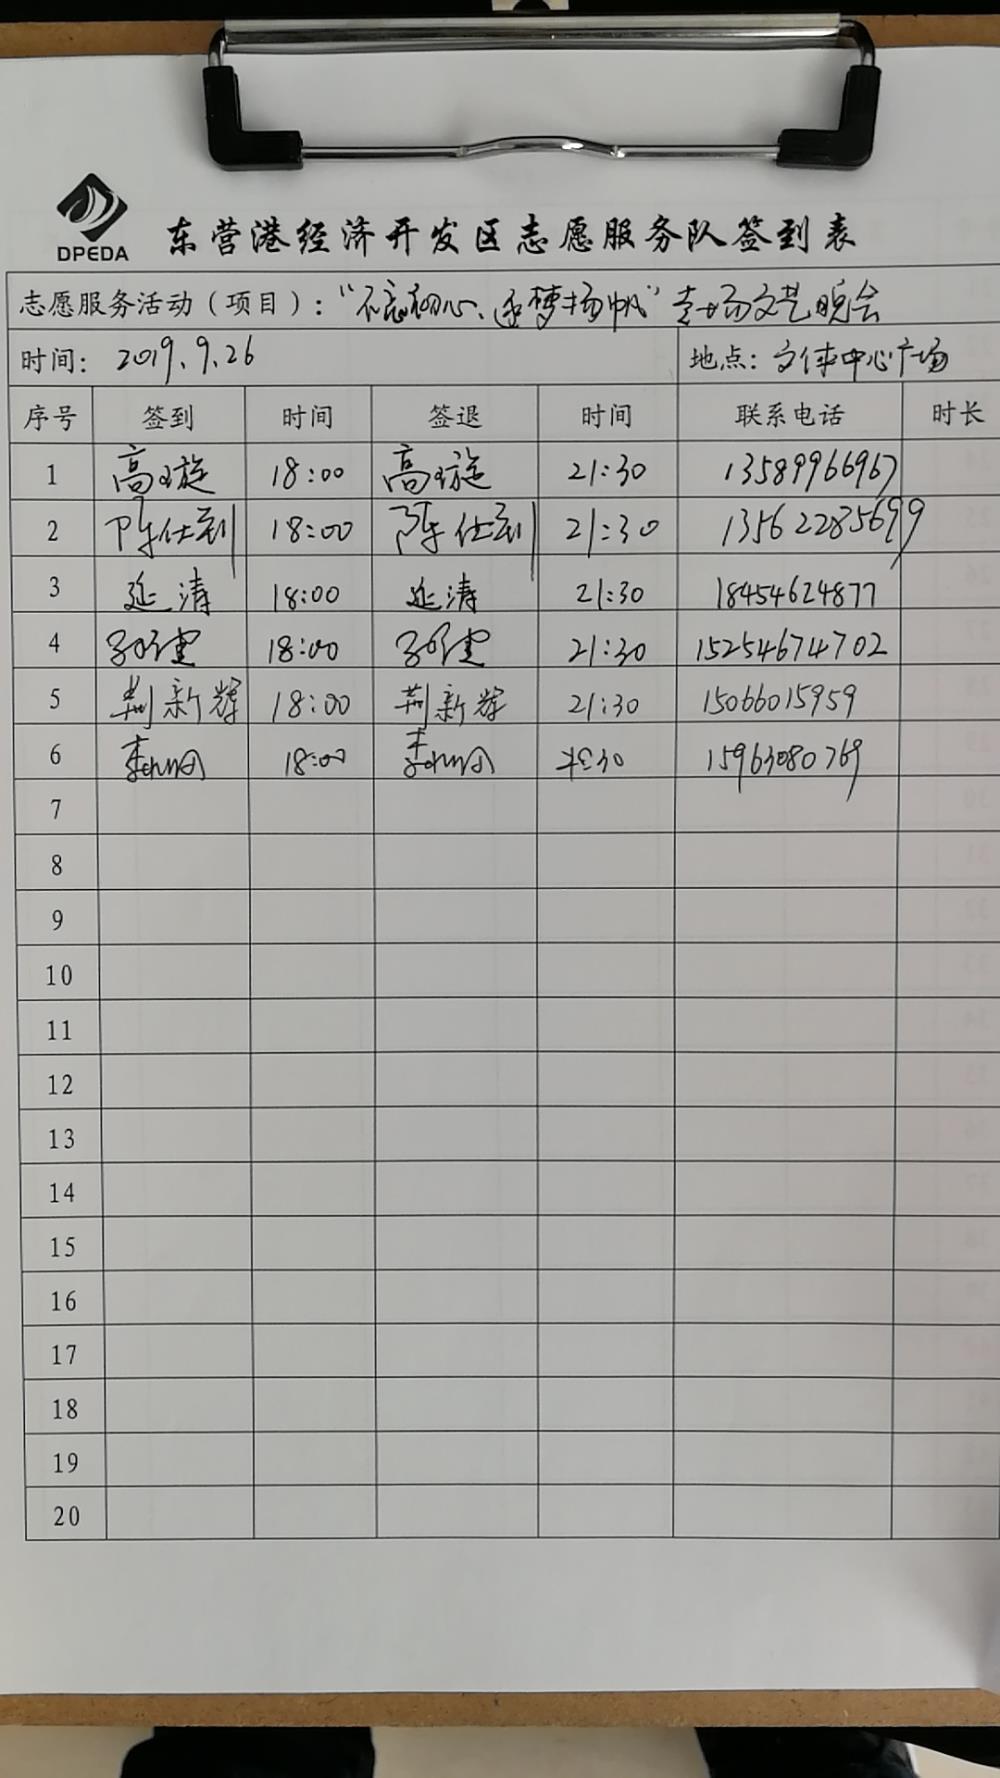 DPEDA
东营港经济开发区志愿服务队签到表
志愿服务活动（项目）：“不忘初心、逐梦扬帆”专场文艺晚会
时间： 2019.9.26 地点：文体中心广场
序号 签到 时间 签退 时间 联系电话 时长
1 高璇 18:00 高璇 21:30 13589966967
2 陈仕刚 18:00 陈仕刚 21:30 13562285699
3 延涛 18:00 延涛 21:30 18454624877
4 18:00 21:30 15254674702
5 荆新辉 18:00 荆新辉 21:30 15066015959
6 18:00 15963080769
7
8
9
10
11
12
13
14
15
16
17
18
19
20